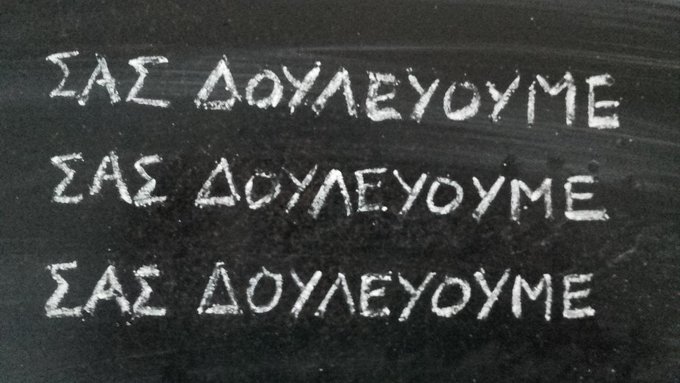 ΣΑΣ ΔΟΥΛΕΥΟΥΜΕ
ΣΑΣ ΔΟΥΛΕΥΟΥΜΕ
ΣΑΣ ΔΟΥΛΕΥΟΥΜΕ